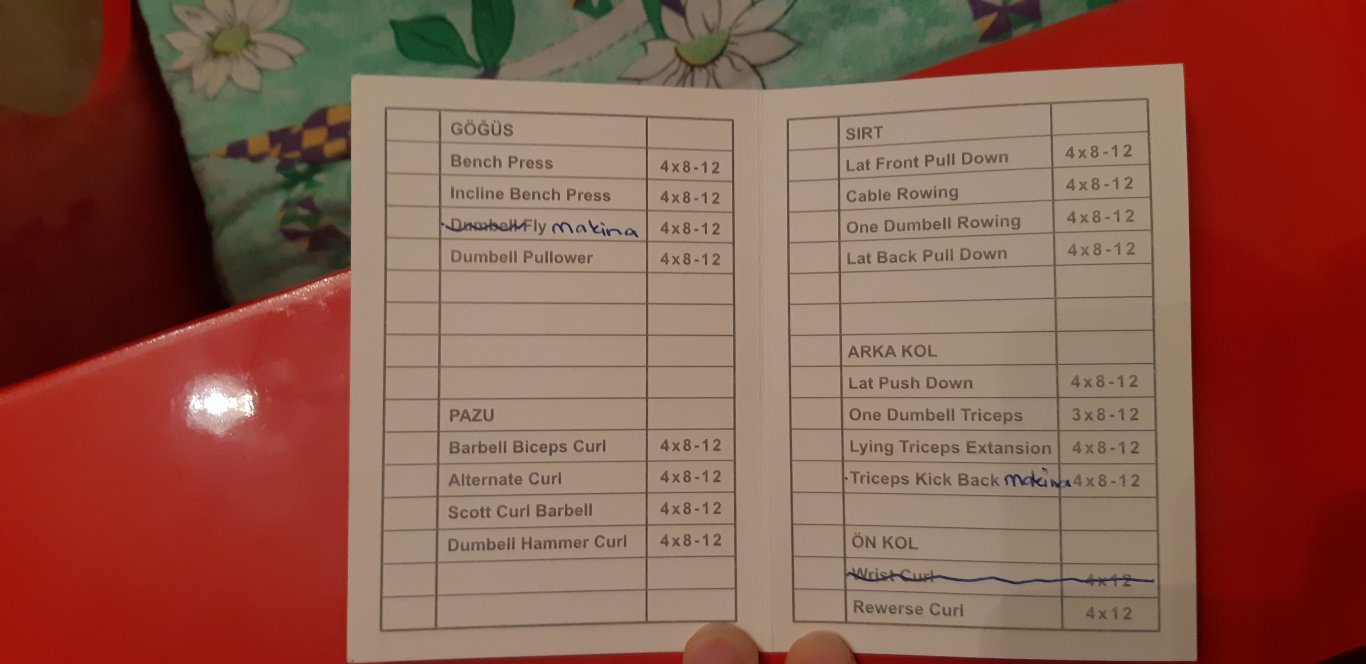 GÖĞÜS
Bench Press 4x8-12
Incline Bench Press 4x8-12
Dumbell Fly makina 4x8-12
Dumbell Pullower 4x8-12
PAZU
Barbell Biceps Curl 4x8-12
Alternate Curl 4x8-12
Scott Curl Barbell 4x8-12
Dumbell Hammer Curl 4x8-12
SIRT
Lat Front Pull Down 4x8-12
Cable Rowing 4x8-12
One Dumbell Rowing 4x8-12
Lat Back Pull Down 4x8-12
ARKA KOL
Lat Push Down 4x8-12
One Dumbell Triceps 3x8-12
Lying Triceps Extansion 4x8-12
Triceps Kick Back makina 4x8-12
ÖN KOL
Wrist Curl 4x12
Rewerse Curl 4x12